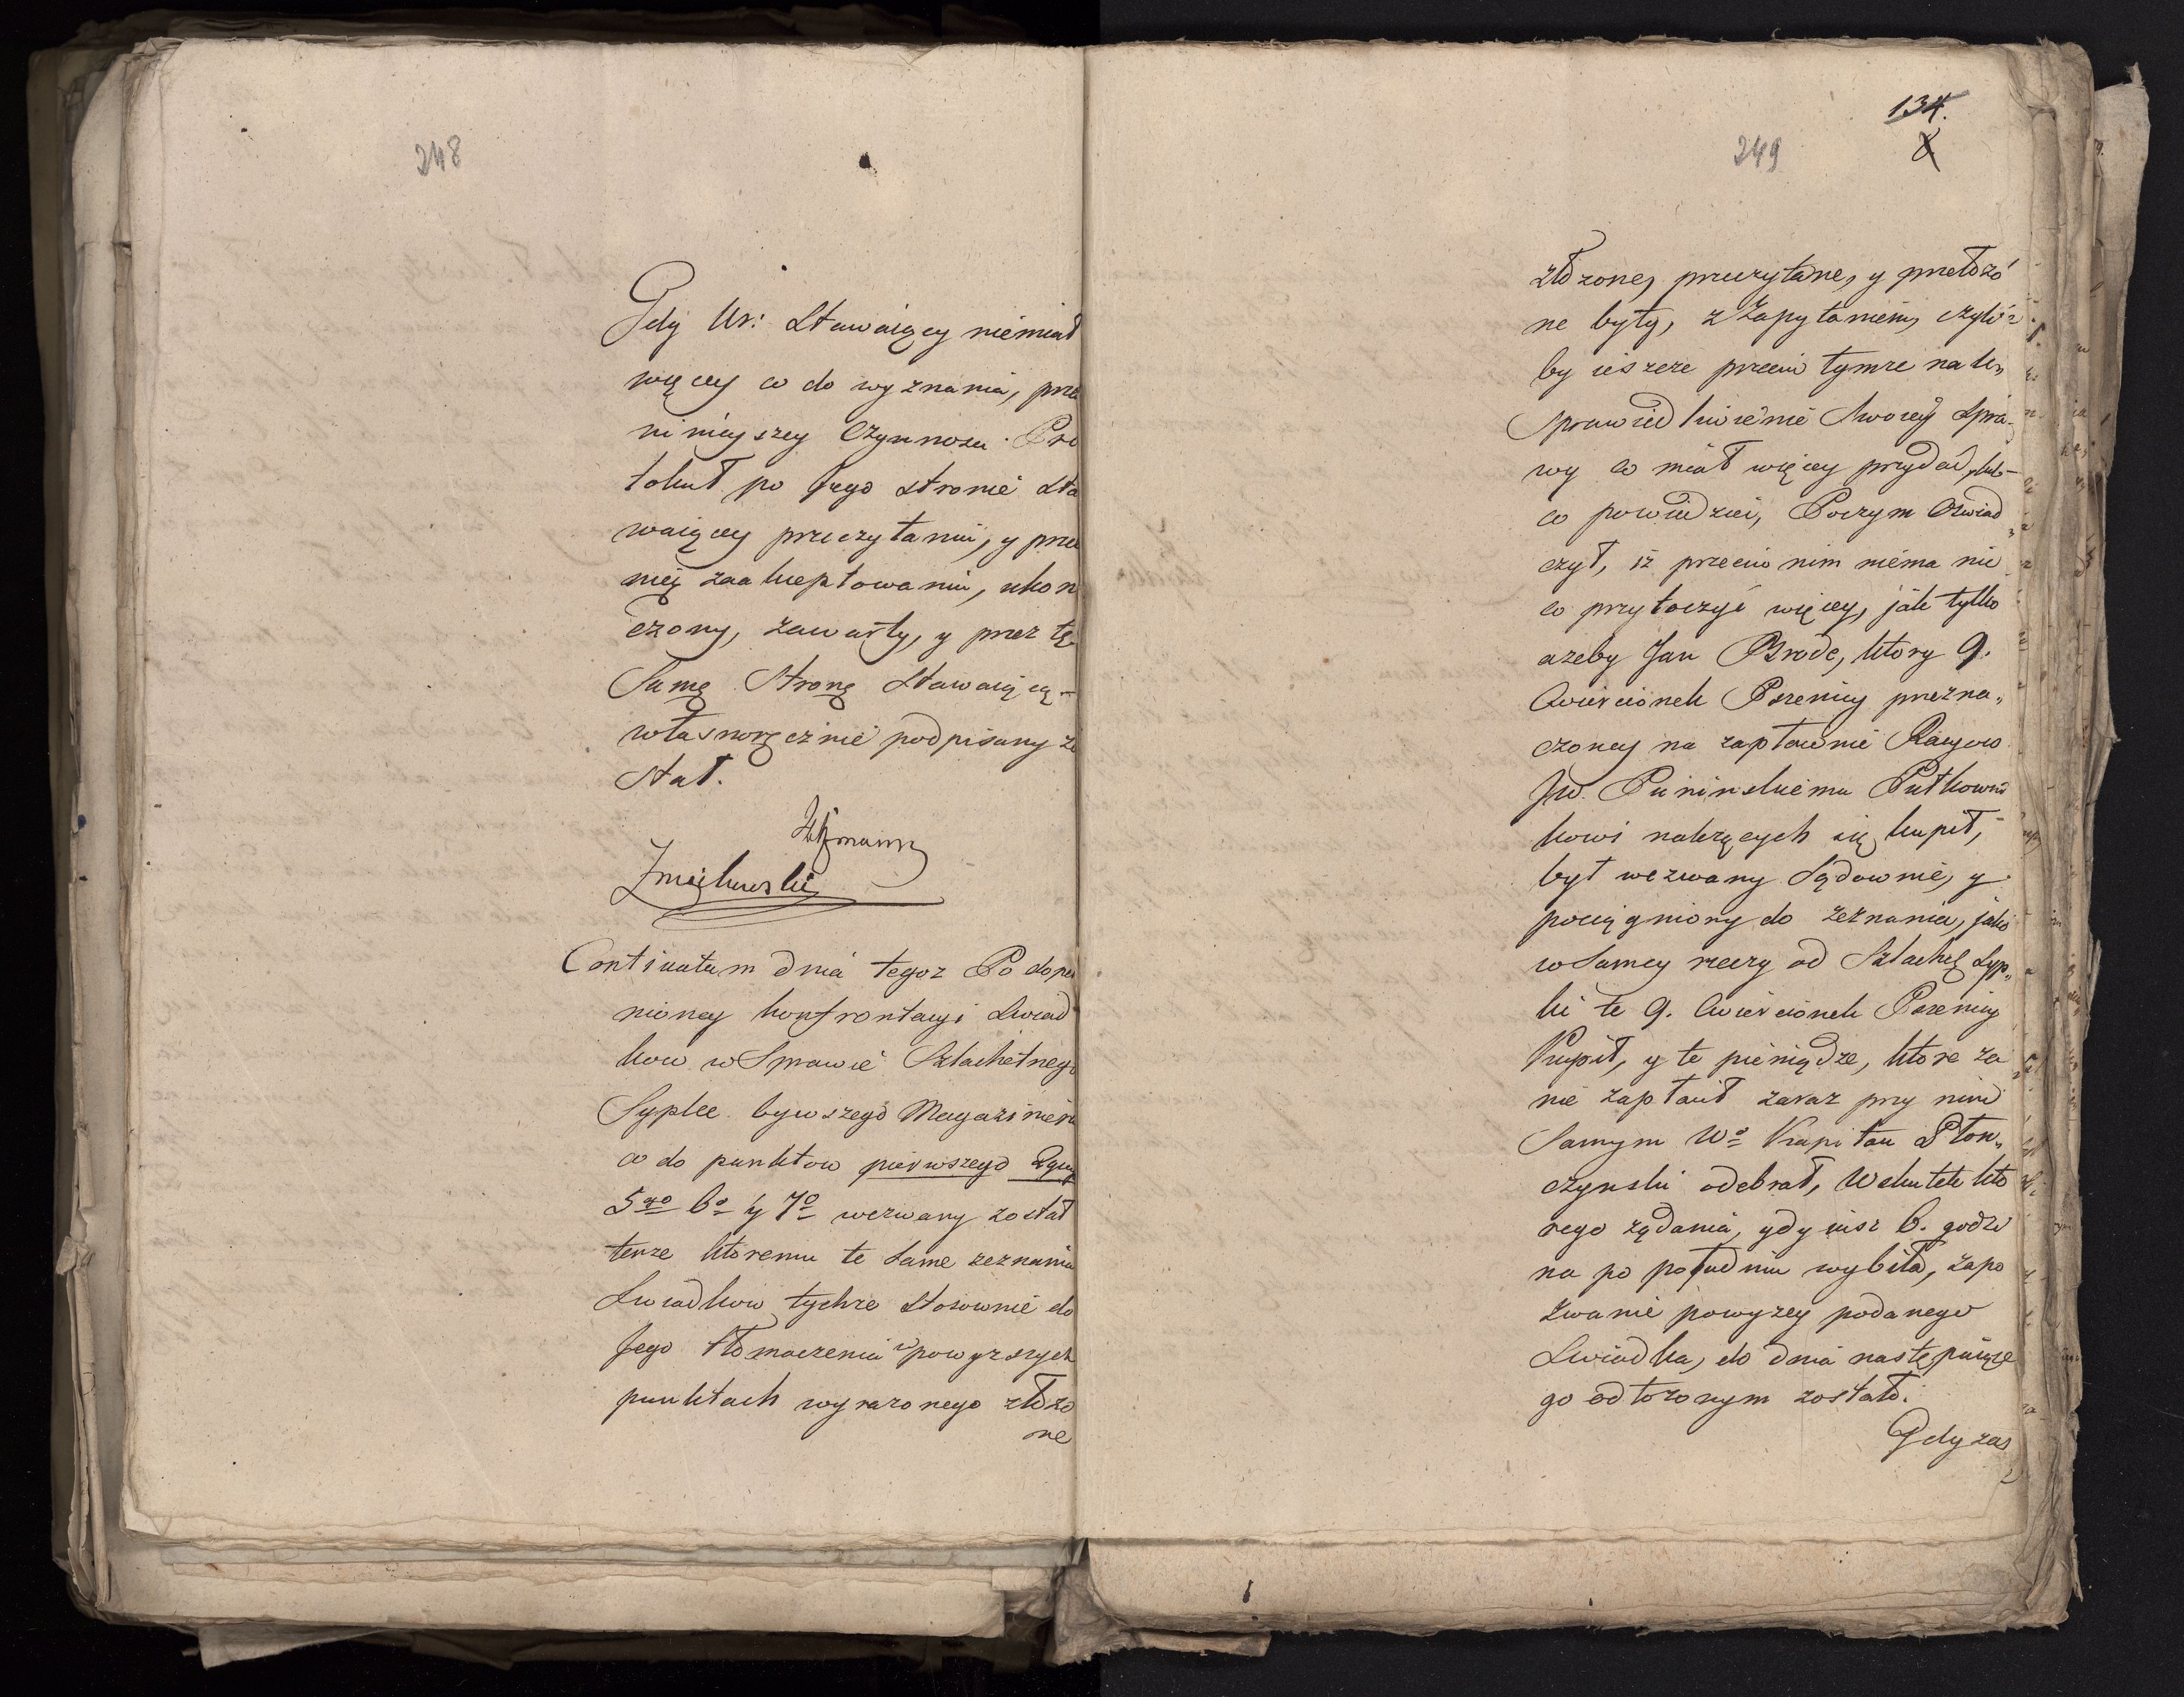 248
Gdy Ur: Stawaiący niemiał
więcey co do wyznania, prze
ninieyszey Czynnosci Pro
tokuł po Jego stronie sta
waiącey przeczytaniu, y przez
nię zaakceptowaniu, ukon
czony, zawarty, y przez tę
Samę Stronę Stawaiącą
własnoręcznie podpisany zo
stał.
Zmijewski
Continuatum dnia tegoz Po dope
nioney konfrontacyi Swiad
kow w Sprawie Szlachetnego
Sypke bywszego Magaziniera
co do punktow pierwszego 2go
5go 6o y 7o wezwany został
tenze ktoremu te same zeznania
Swiadkow tychze stosownie do
Jego tłomaczenia w powyzszych
punktach wyrazonego złozo
one
134.
8
249
złozone, przeczytane, y przełozo
ne były, z Zapytaniem, czyliz
by ieszcze przeciw tymze na U„
sprawiedliwienie Swoiey Spra„
wy co miał więcey przydać, lub
co powiedziec, Poczym Oswiad„
czył, iż przeciw nim niema nic
co przytoczyć więcey, jak tylko
azeby Jan Brode, ktory 9.
Cwierciönek Pszenicy przezna„
czoney na zapłacenie Racyow
JW. Puninskiemu Pułkowni
kowi nalezących się kupił,
był wezwany Sądownie, y
pociągniony do zeznania, jako
w Samey rzeczy od Szlachę Syp„
ki te 9. Cwierciönek Pszenicy
Kupił, y te pieniądze, ktore za
nie zapłacił zaraz przy nim
Samym Wo Kapitan Płon„
czynski odebrał, W skutek kto
rego ządania, gdy iusz 6. godzi
na po południu wybiła, zapo
zwanie powyzey podanego
Swiadka, do dnia następuiące
go odłozonym zostało.
Gdy zas